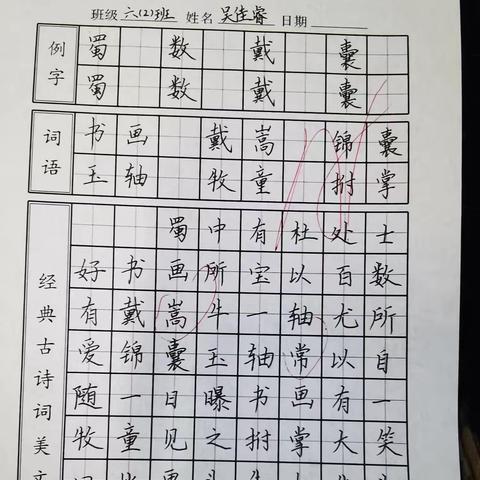 班级 六(2)班 姓名 吴佳睿 日期
例字
蜀 数 戴 囊
蜀 数 戴 囊
词语
书画 戴嵩 锦囊
玉轴 牧童 拊掌
经典古诗词美文
蜀中有杜处士
好书画所宝以百数
有戴嵩牛一轴尤所
爱锦囊玉轴常以自
随一日曝书画有一
牧童见之拊掌大笑